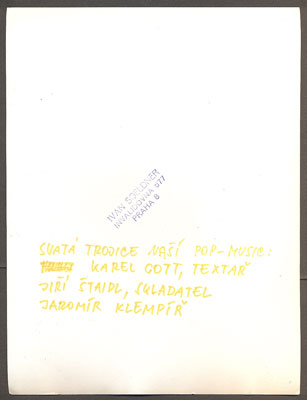 IVAN
PRAHA 8
SVATÁ TROJICE NAŠÍ POP-MUSIC:
KAREL GOTT, TEXTAŘ
JIŘÍ ŠTAIDL, SKLADATEL
JAROMÍR KLEMPÍŘ